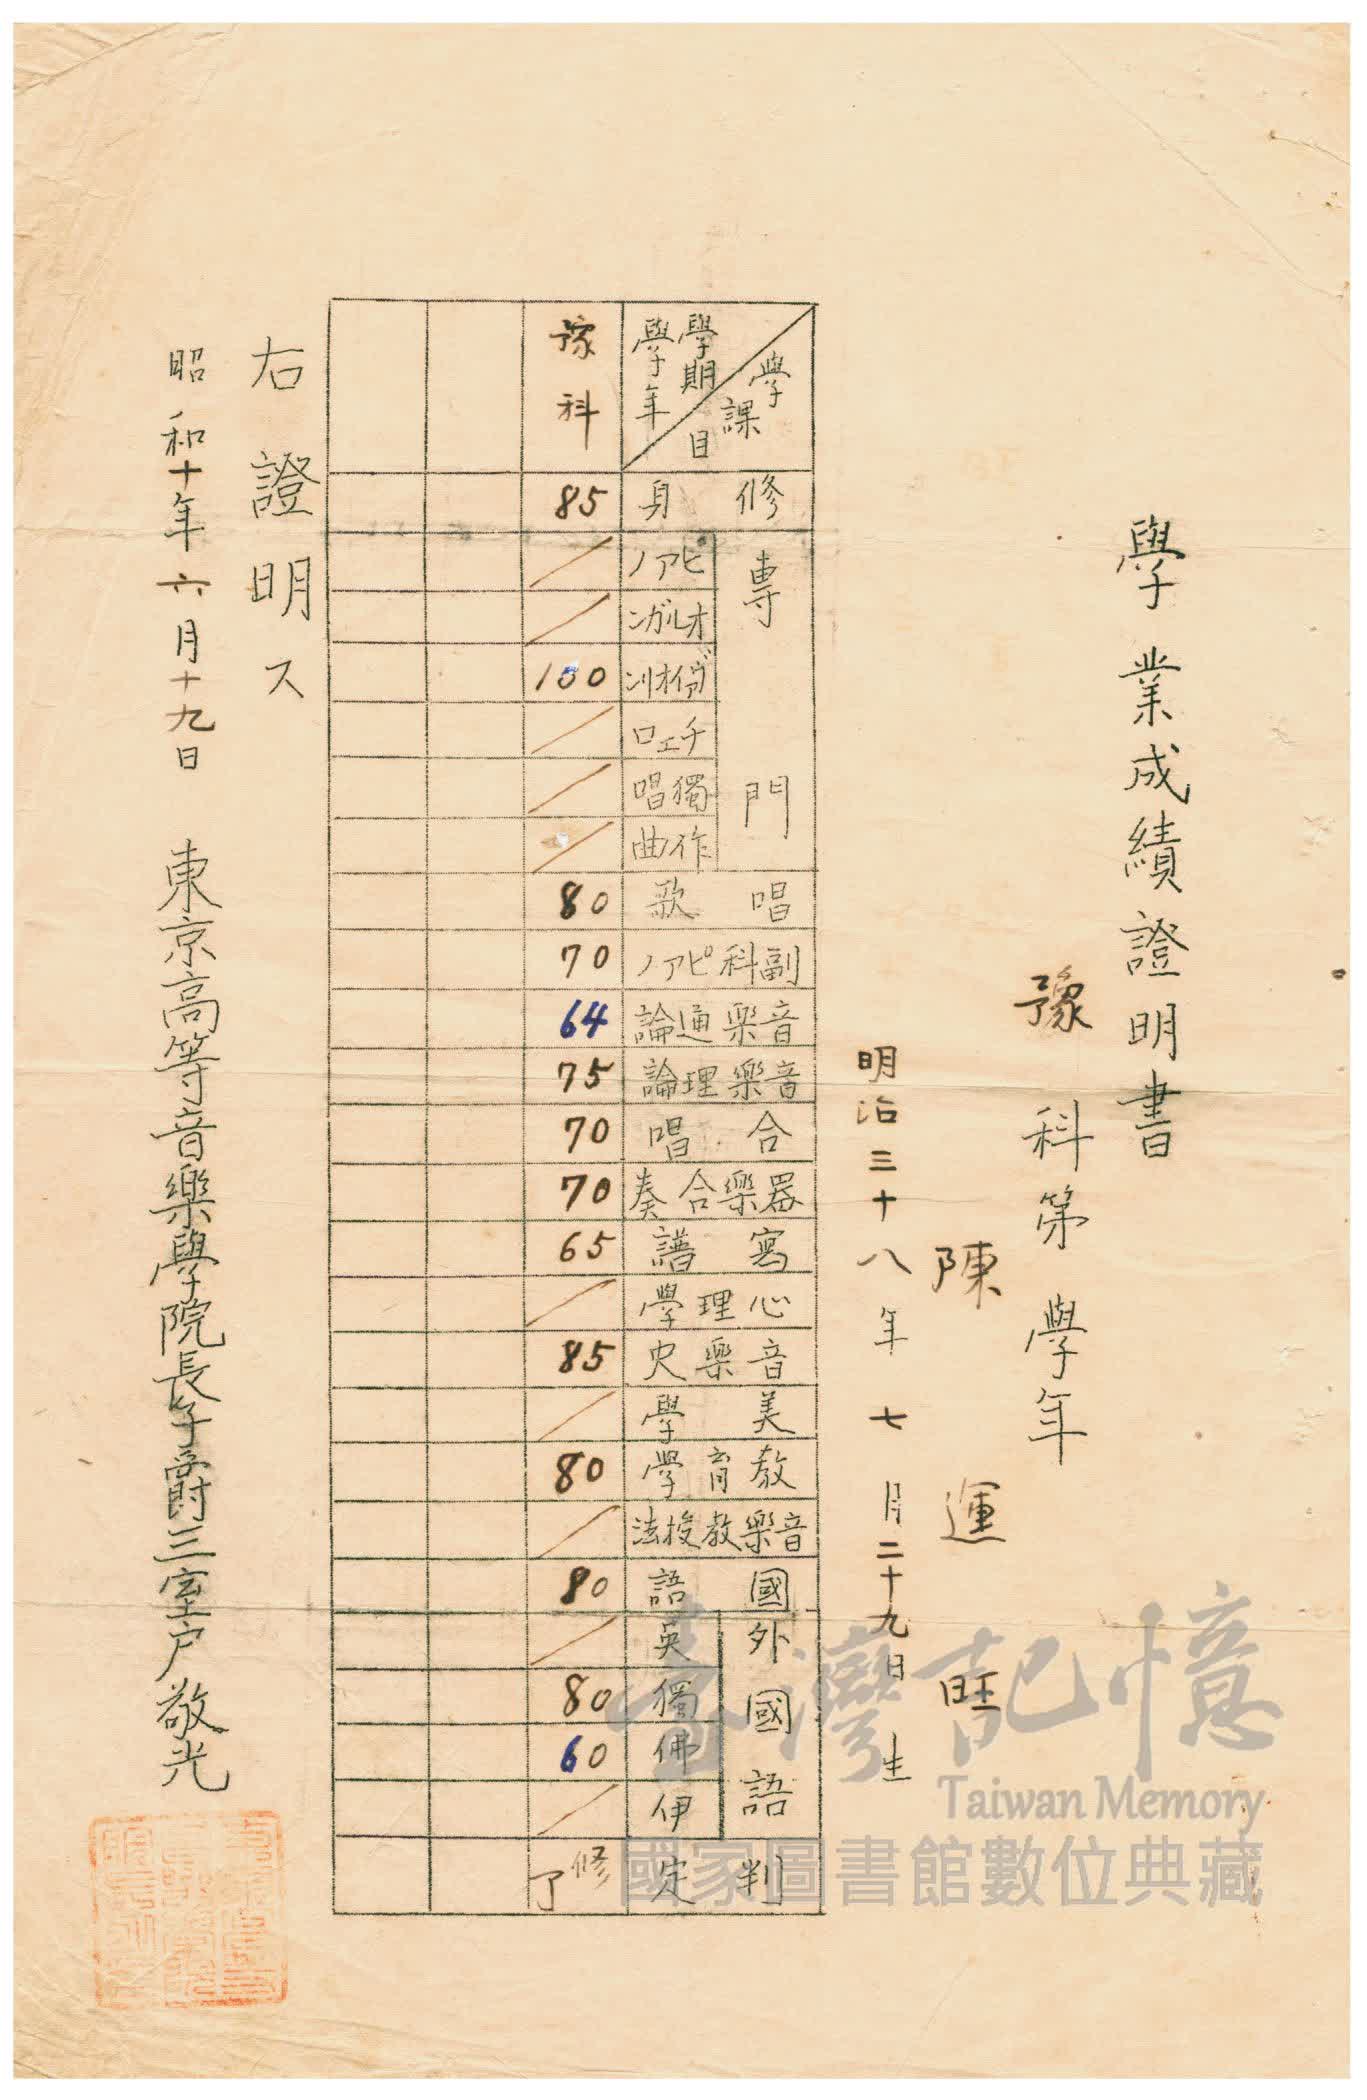 學業成績證明書
豫科第 學年
陳運旺
明治三十八年七月二十九日生
學課目
學期
學年
豫科
修身 85
專門
ピアノ ／
オルガン ／
ヴァイオリン 100
チェロ ／
獨唱 ／
作曲 ／
唱歌 80
副科ピアノ 70
音樂通論 64
音樂理論 75
合唱 70
器樂合奏 70
寫譜 65
心理學 ／
音樂史 85
美學 ／
教育學 80
音樂教授法 ／
國語 80
外國語
英 ／
獨 80
佛 60
伊 ／
判定 修了
右證明ス
昭和十年六月十九日
東京高等音樂學院長子爵三室戸敬光
臺灣記憶
Taiwan Memory
國家圖書館數位典藏